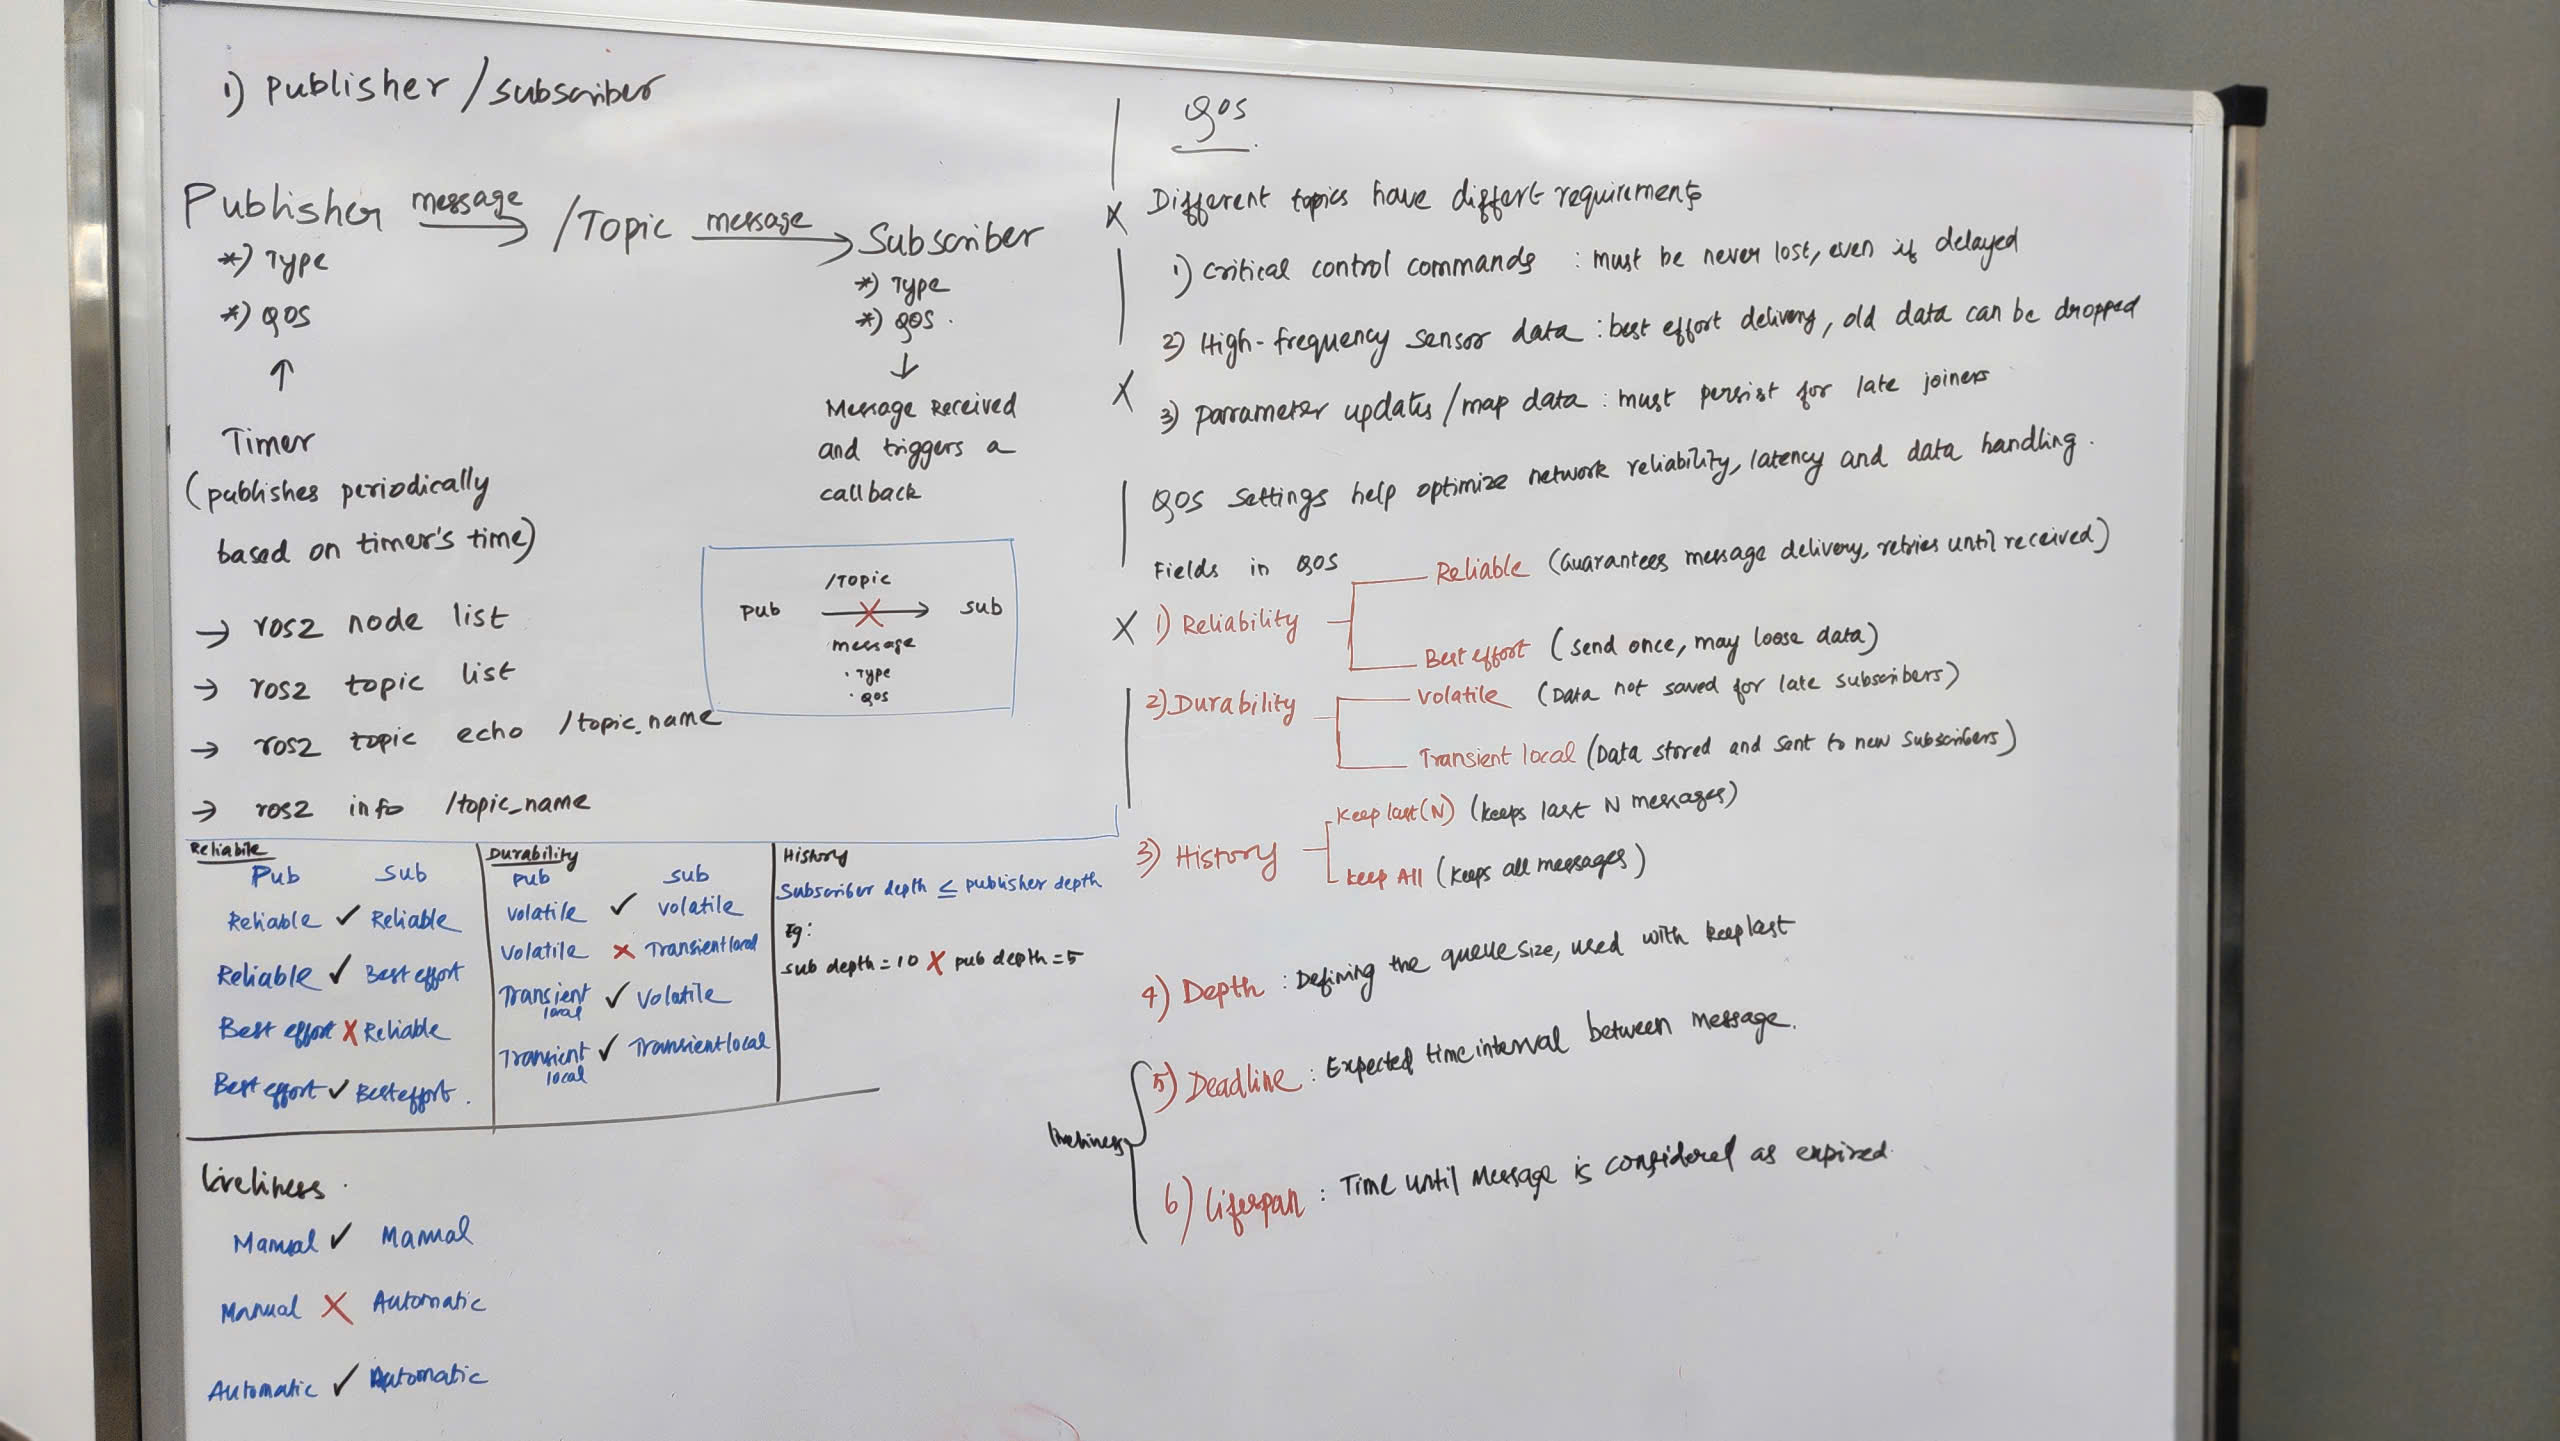 1) Publisher / subscriber
Publisher message /Topic message Subscriber
*) Type
*) QOS
Timer
(publishes periodically
based on timer's time)
*) Type
*) QOS.
Message Received
and triggers a
callback
/Topic
pub X sub
message
· Type
· QOS
→ ros2 node list
→ ros2 topic list
→ ros2 topic echo /topic_name
→ ros2 info /topic_name
Reliabile
Pub Sub
Reliable ✓ Reliable
Reliable ✓ Best effort
Best effort X Reliable
Best effort ✓ Best effort.
Durability
pub sub
volatile ✓ volatile
volatile X Transient local
Transient local ✓ volatile
Transient local ✓ Transient local
History
Subscriber depth ≤ publisher depth
Eg:
sub depth = 10 X pub depth = 5
Liveliness.
Manual ✓ Manual
Manual X Automatic
Automatic ✓ Automatic
QOS
Different topics have differt requirements
1) Critical control commands : must be never lost, even if delayed
2) High-frequency sensor data : best effort delivery, old data can be dropped
3) parameter updates / map data : must persist for late joiners
QOS settings help optimize network reliability, latency and data handling.
Fields in QOS
1) Reliability
Reliable (Guarantees message delivery, retries until received)
Best effort (send once, may loose data)
2) Durability
volatile (Data not saved for late subscribers)
Transient local (Data stored and sent to new subscribers)
3) History
keep last (N) (keeps last N messages)
keep All (keeps all messages)
4) Depth : Defining the queue size, used with keep last
liveliness
5) Deadline : Expected time interval between message.
6) Lifespan : Time until message is considered as expired.